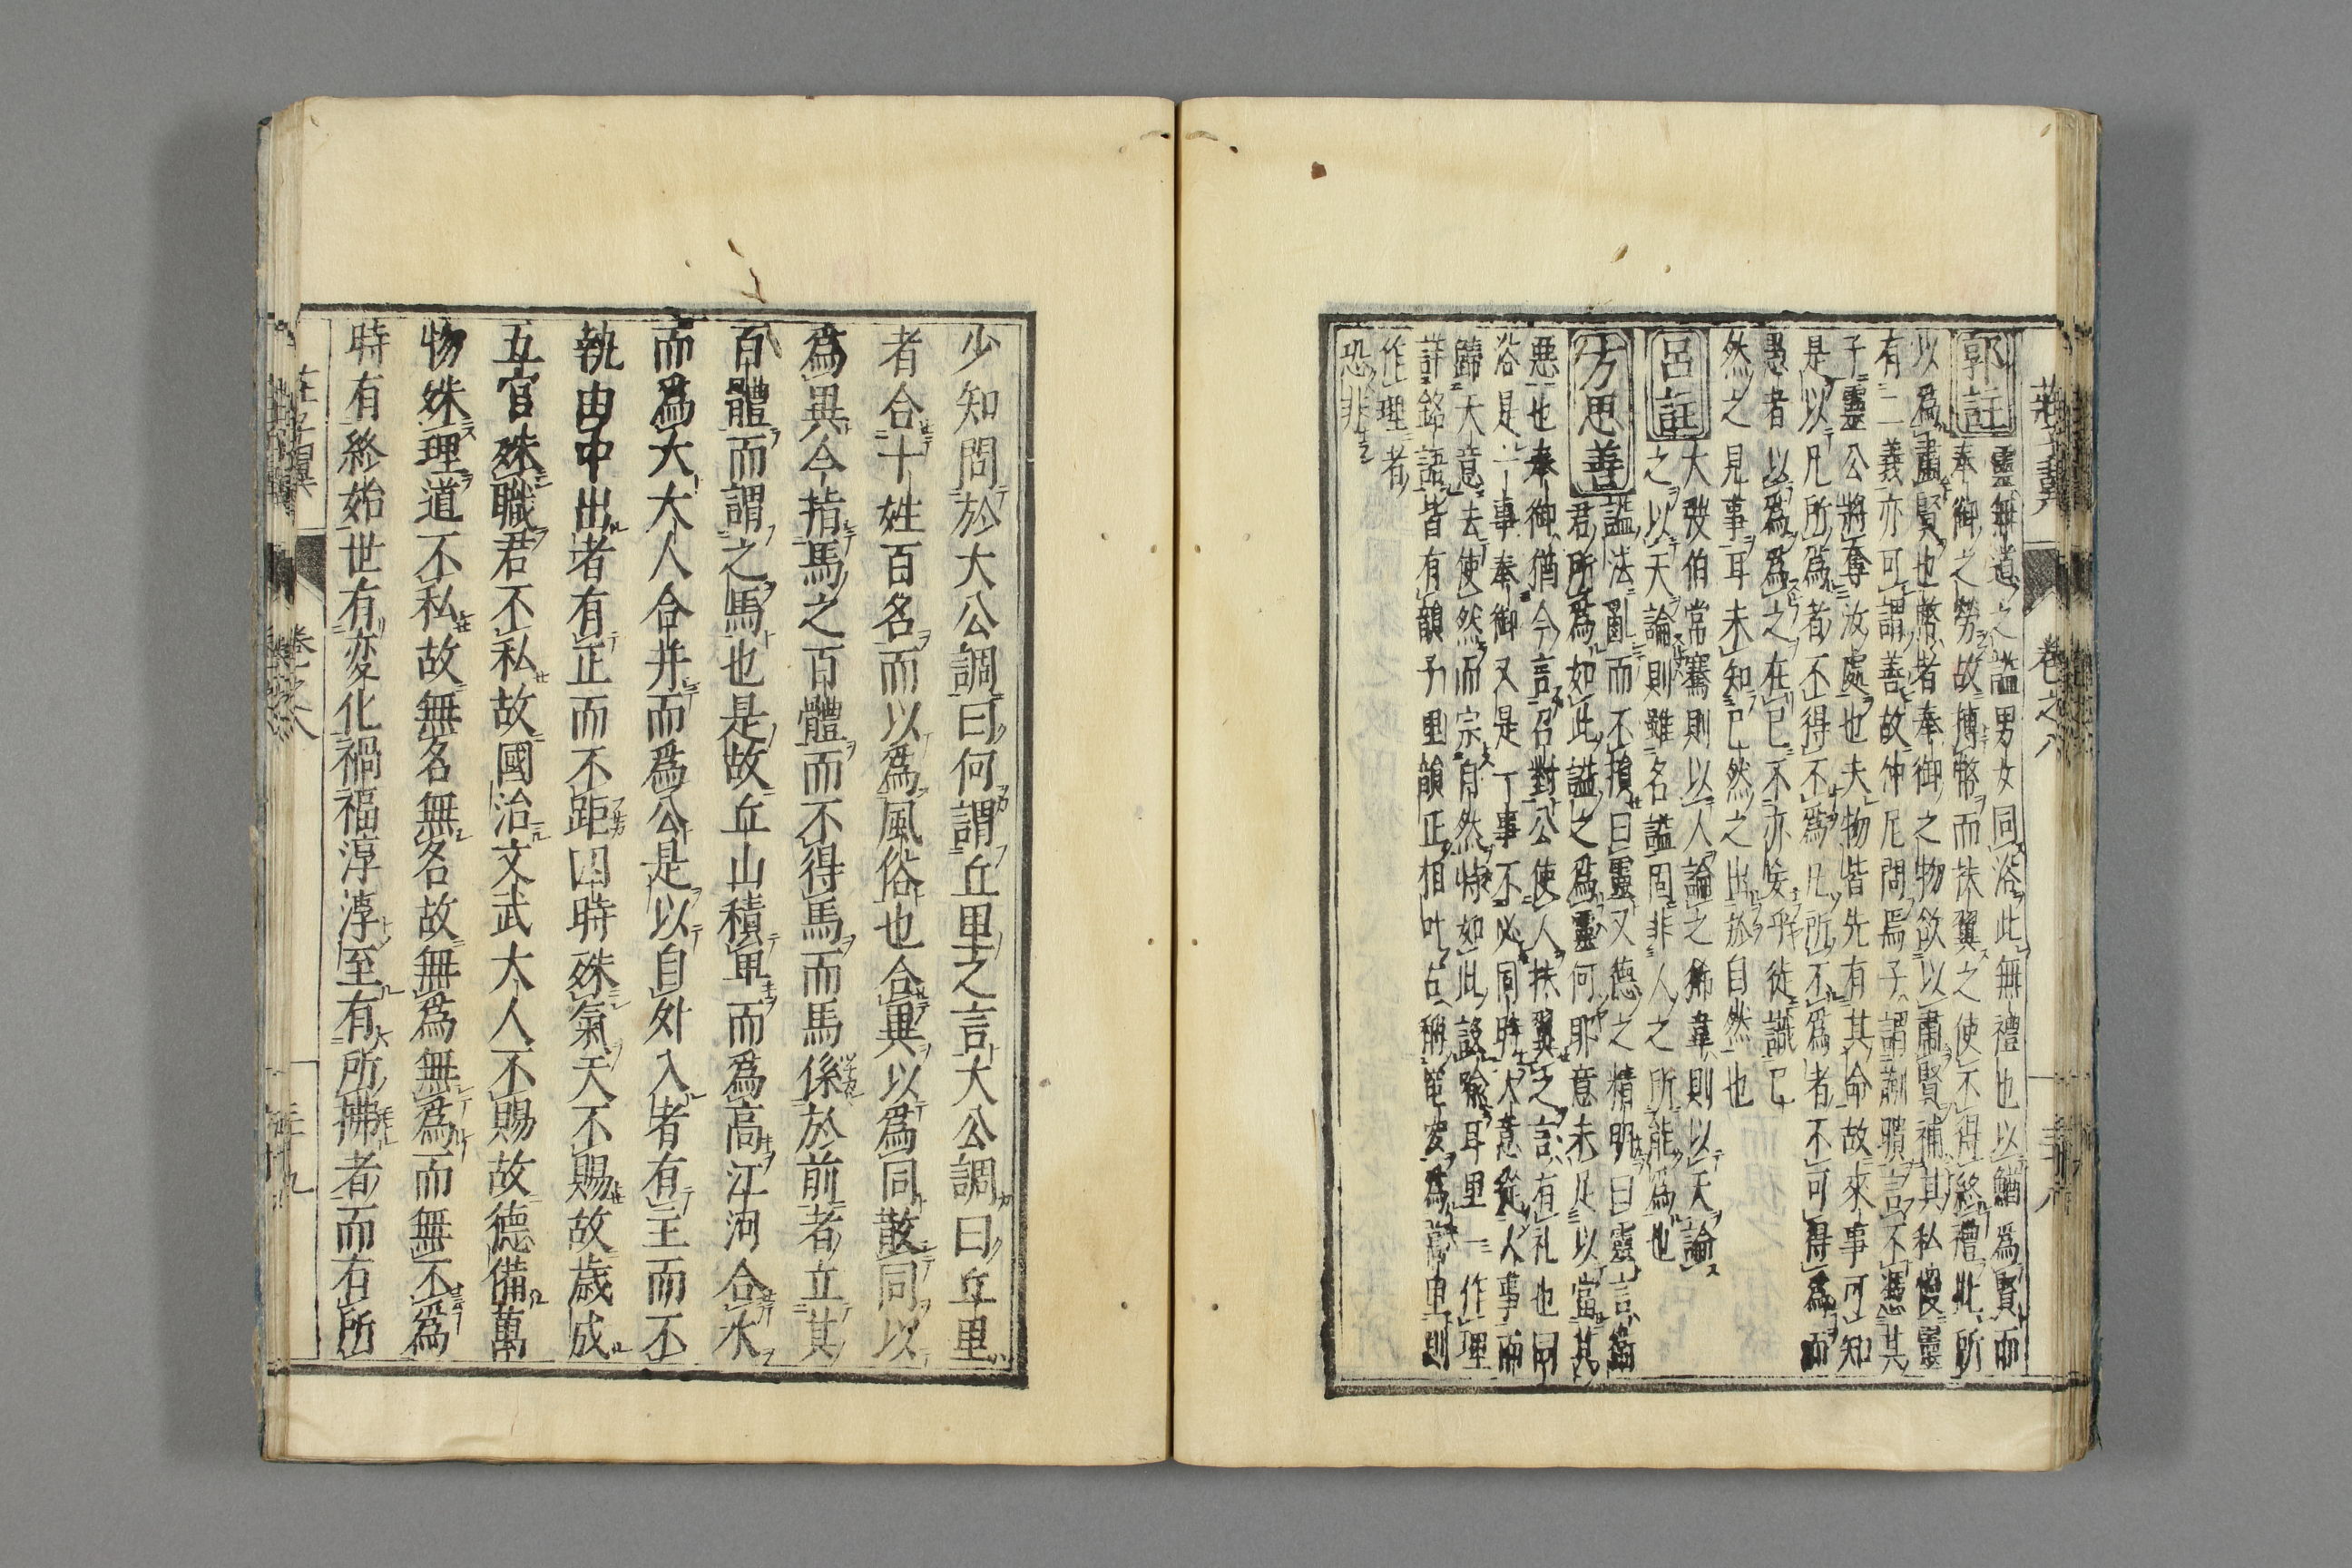 莊子翼 卷之八 三十八
郭註 靈無道之謚男女同浴此無禮也以鰌爲賢而
奉御之勞故搏幣而扶翼之使不得終禮此所
以爲肅賢也幣者奉御之物欲以肅賢補其私慢靈
有二義亦可謂善故仲尼問焉子謂蒯聵言不憑其
子靈公將奪汝處也夫物皆先有其命故來事可知
是以凡所爲者不得不爲凡所不爲者不可得爲而
愚者以爲爲之在已不亦妄乎徙識已
然之見事耳未知已然之出於自然也
呂註 大弢伯常騫則以人論之狶韋則以天論
之以天論則雖名謚固非人之所能爲也
方思善 謚法亂而不損曰靈又德之精明曰靈言衛
君所爲如此謚之爲靈何耶意未足以當其
惡也奉御猶今言召對公使人扶翼之言有礼也同
浴是一事奉御又是一事不必同時大意從人事而
歸大意去使然而宗自然特如此設喻耳里一作理
詳銘語皆有韻子里韻正相叶古稱
作理者
恐非
少知問於大公調曰何謂丘里之言大公調曰丘里
者合十姓百名而以爲風俗也合異以爲同散同以
爲異今指馬之百體而不得馬而馬係於前者立其
百體而謂之馬也是故丘山積卑而爲高江河合水
而爲大大人合并而爲公是以自外入者有主而不
執由中出者有正而不距四時殊氣天不賜故歳成
五官殊職君不私故國治文武大人不賜故德備萬
物殊理道不私故無名無名故無爲無爲而無不爲
時有終始世有変化禍福淳淳至有所拂者而有所
莊子翼 卷之八 三十九